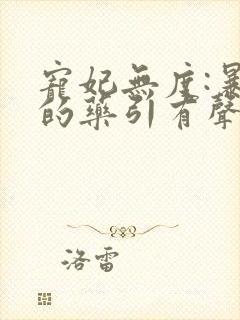 寵妃無度:暴
的藥引有聲
洛雷